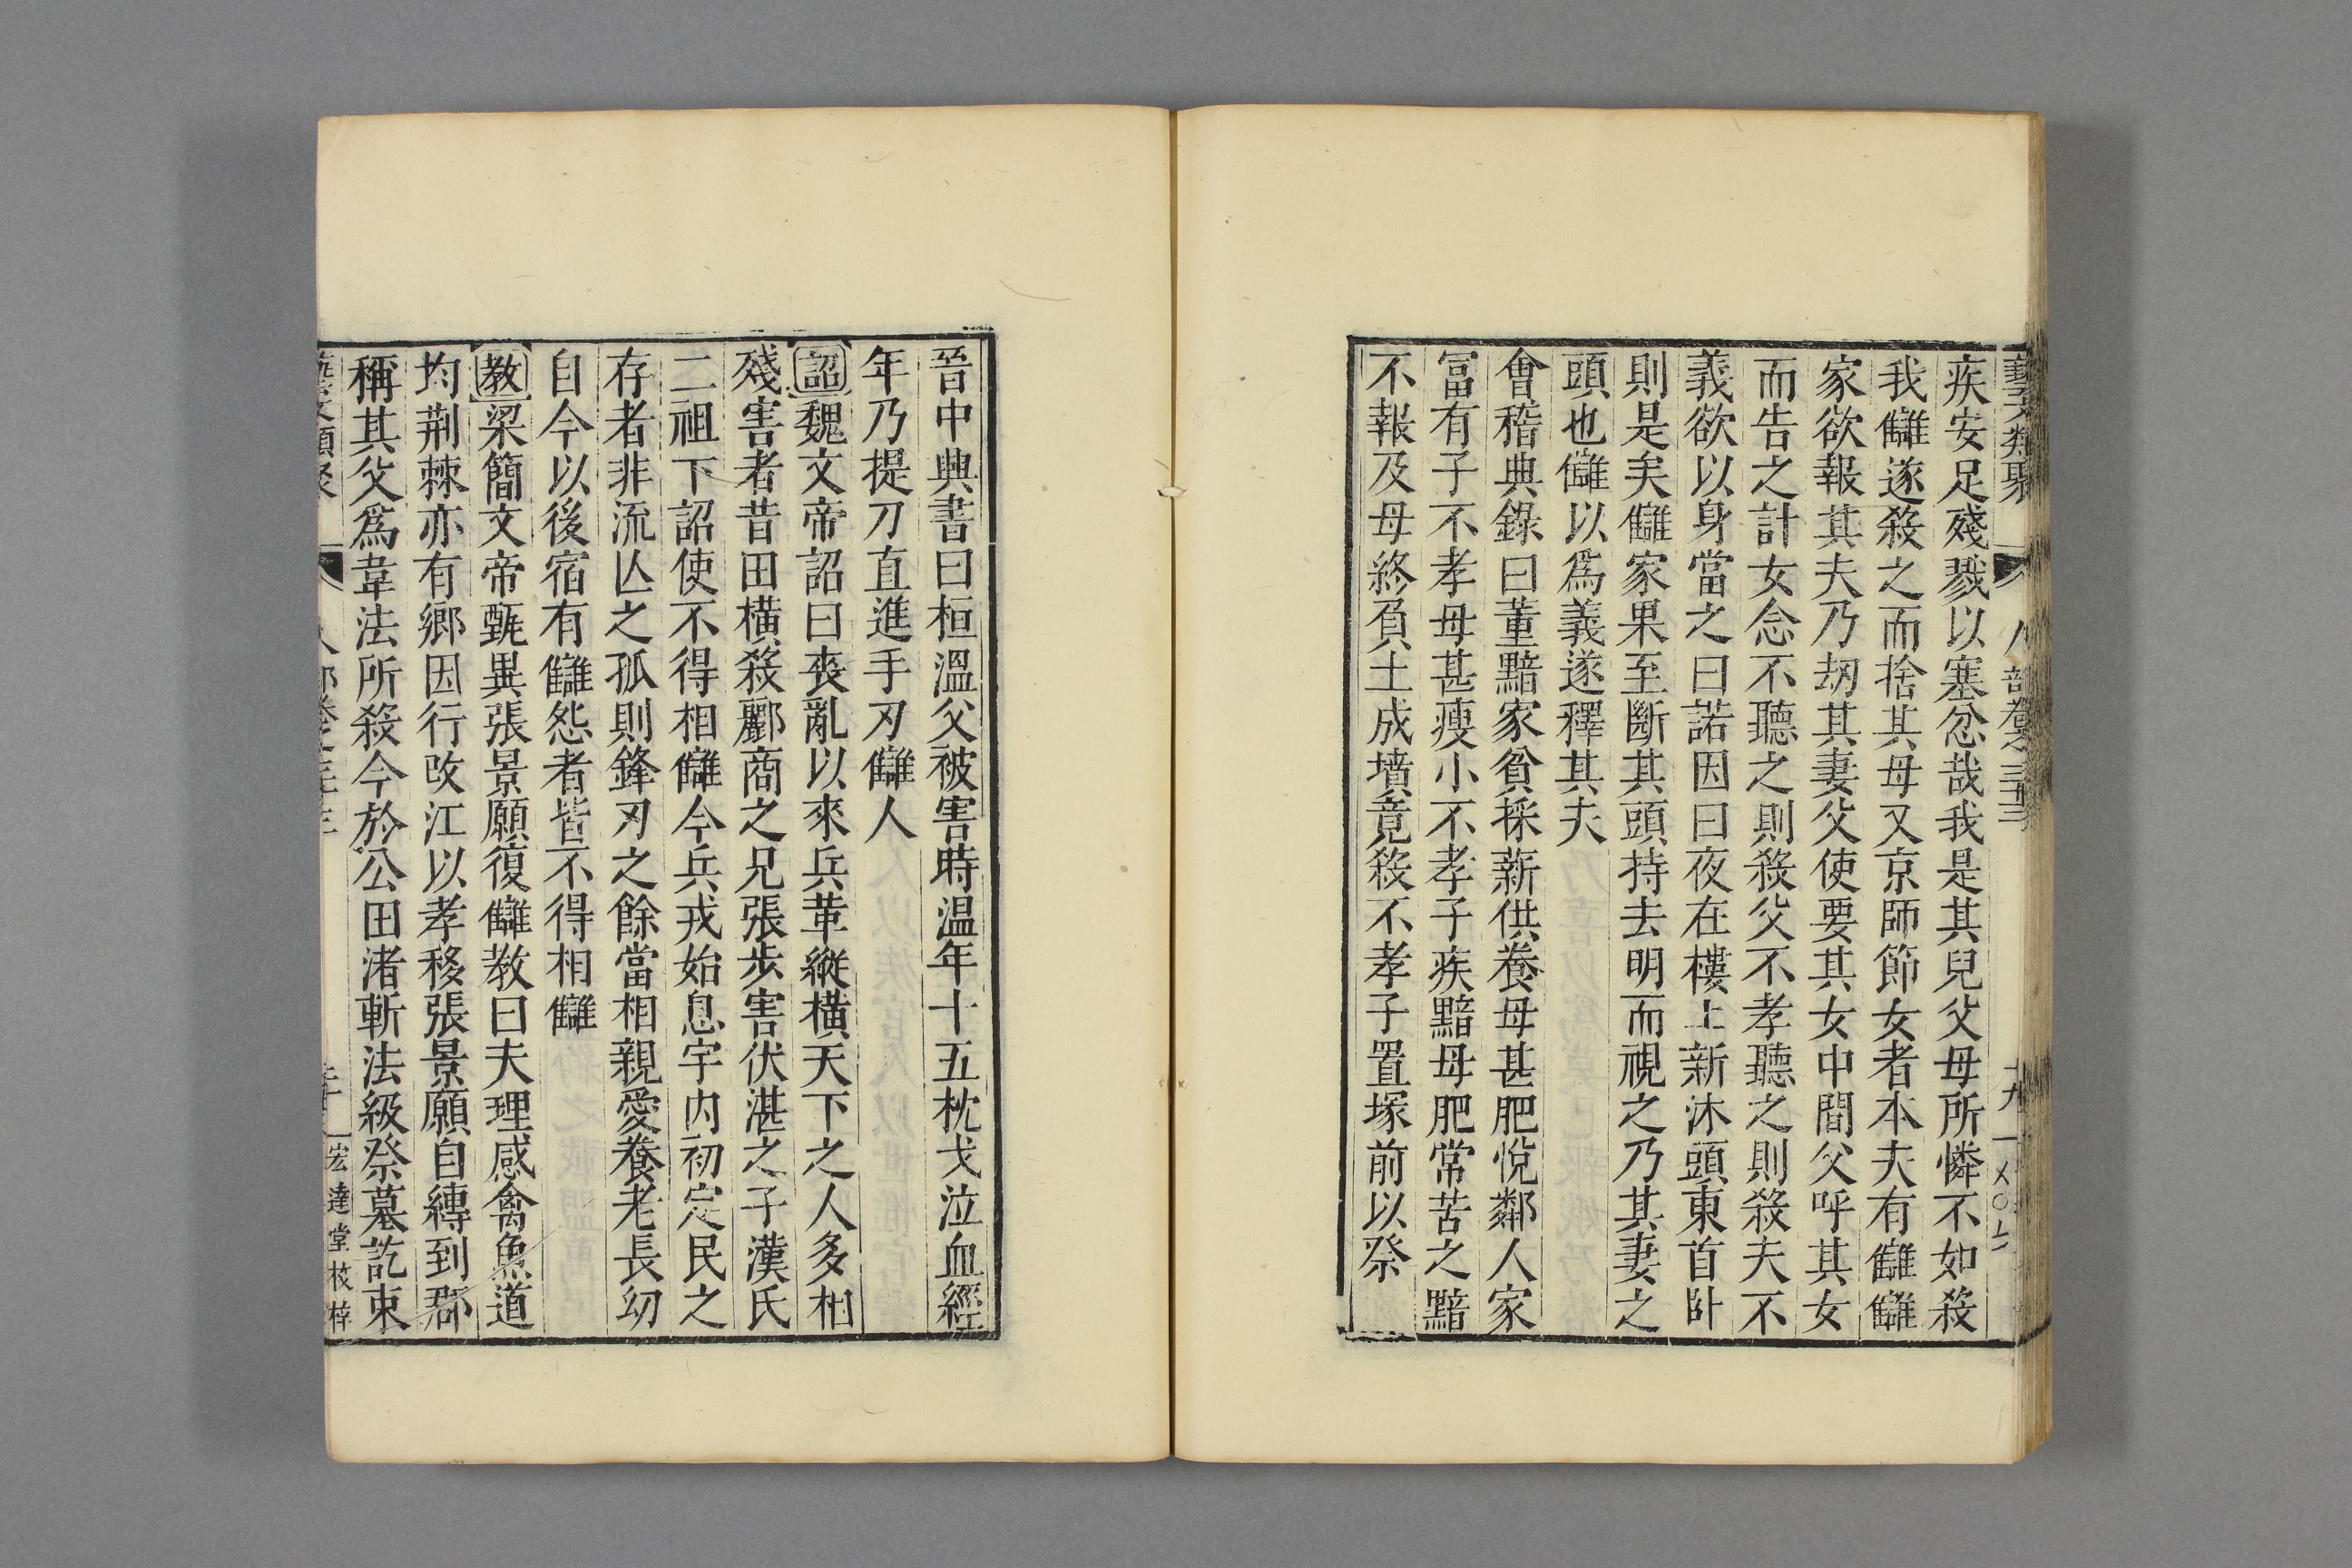 藝文類聚 人部卷之三十三 十九
疾安足殘戮以塞忿哉我是其兒父母所憐不如殺
我讎遂殺之而捨其母又京師節女者本夫有讎讎
家欲報其夫乃刼其妻父使要其女中間父呼其女
而告之計女念不聽之則殺父不孝聽之則殺夫不
義欲以身當之曰諾因曰夜在樓上新沐頭東首卧
則是矣讎家果至斷其頭持去明而視之乃其妻之
頭也讎以爲義遂釋其夫
會稽典錄曰董黯家貧採薪供養母甚肥悅鄰人家
富有子不孝母甚瘦小不孝子疾黯母肥常苦之黯
不報及母終負土成墳竟殺不孝子置塚前以祭
晉中興書曰桓溫父被害時溫年十五枕戈泣血經
年乃提刀直進手刃讎人
詔魏文帝詔曰喪亂以來兵革縱橫天下之人多相
殘害者昔田橫殺酈商之兄張步害伏湛之子漢氏
二祖下詔使不得相讎今兵戎始息宇内初定民之
存者非流亾之孤則鋒刃之餘當相親愛養老長幼
自今以後宿有讎怨者皆不得相讎
教梁簡文帝甄異張景願復讎教曰夫理感禽魚道
均荆棘亦有鄉因行改江以孝移張景願自縛到郡
稱其父爲韋法所殺今於公田渚斬法級祭墓訖束
宏達堂校梓